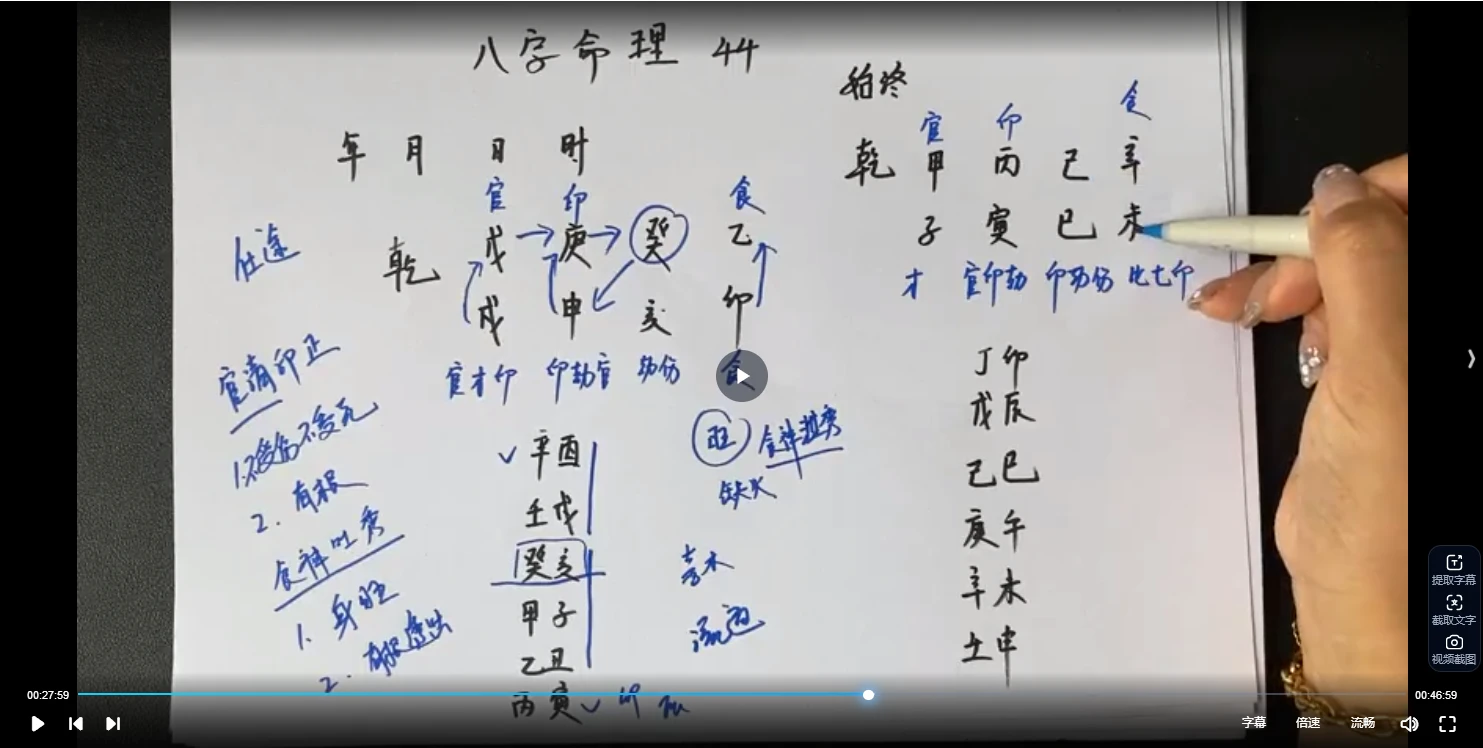 八字命理 44
年 月 日 时
官 印 食
乾 戊 庚 癸 乙
戌 申 亥 卯
官才印 印劫官 劫伤 食
仕途
官清印正
1.不受伤不受克
2.有根
食神吐秀
1.身旺
2.有根透出
辛酉
壬戌
癸亥
甲子
乙丑
丙寅 印
旺 食神挂秀
缺火
喜木
流通
始终
官 印 食
乾 甲 丙 己 辛
子 寅 巳 未
才 官印劫 印劫伤 比七印
丁卯
戊辰
己巳
庚午
辛未
壬申
提取字幕
截取文字
视频截图
00:27:59
00:46:59
字幕 倍速 流畅